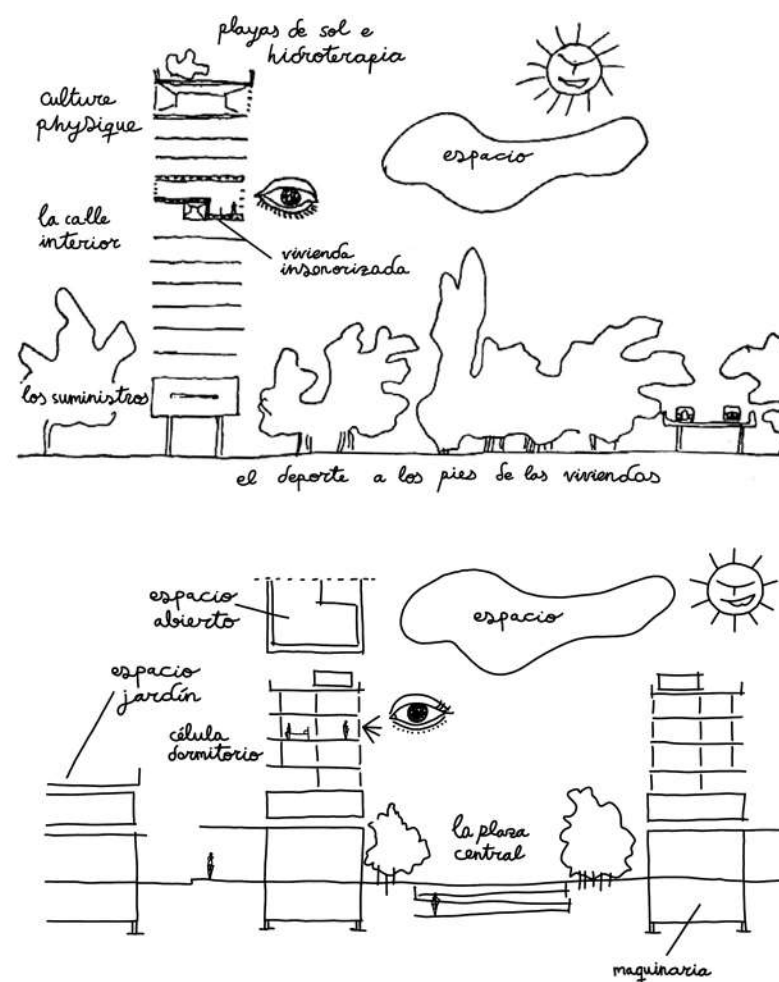 playas de sol e
hidroterapia
culture
physique
espacio
la calle
interior
vivienda
insonorizada
los suministros
el deporte a los pies de las viviendas
espacio
abierto
espacio
espacio
jardín
célula
dormitorio
la plaza
central
maquinaria